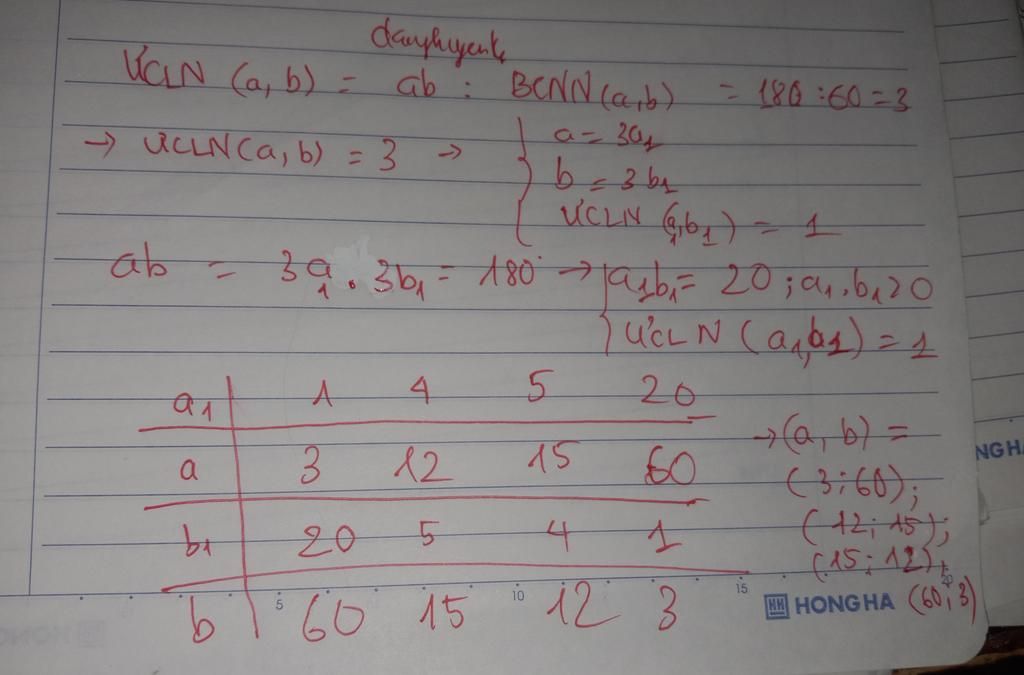 ƯCLN (a, b) = ab : BCNN(a,b) = 180 : 60 = 3
→ ƯCLN(a, b) = 3 → { a = 3a₁
b = 3b₁
ƯCLN (a₁,b₁) = 1
ab = 3a₁ . 3b₁ = 180 → { a₁b₁ = 20 ; a₁, b₁ > 0
ƯCLN (a₁,b₁) = 1
a₁ | 1 4 5 20
a | 3 12 15 60
b₁ | 20 5 4 1
b | 60 15 12 3
→ (a, b) =
(3 ; 60) ;
(12 ; 15) ;
(15 ; 12),
(60 ; 3)
5 10 15 20
HH HONG HA
NG HA